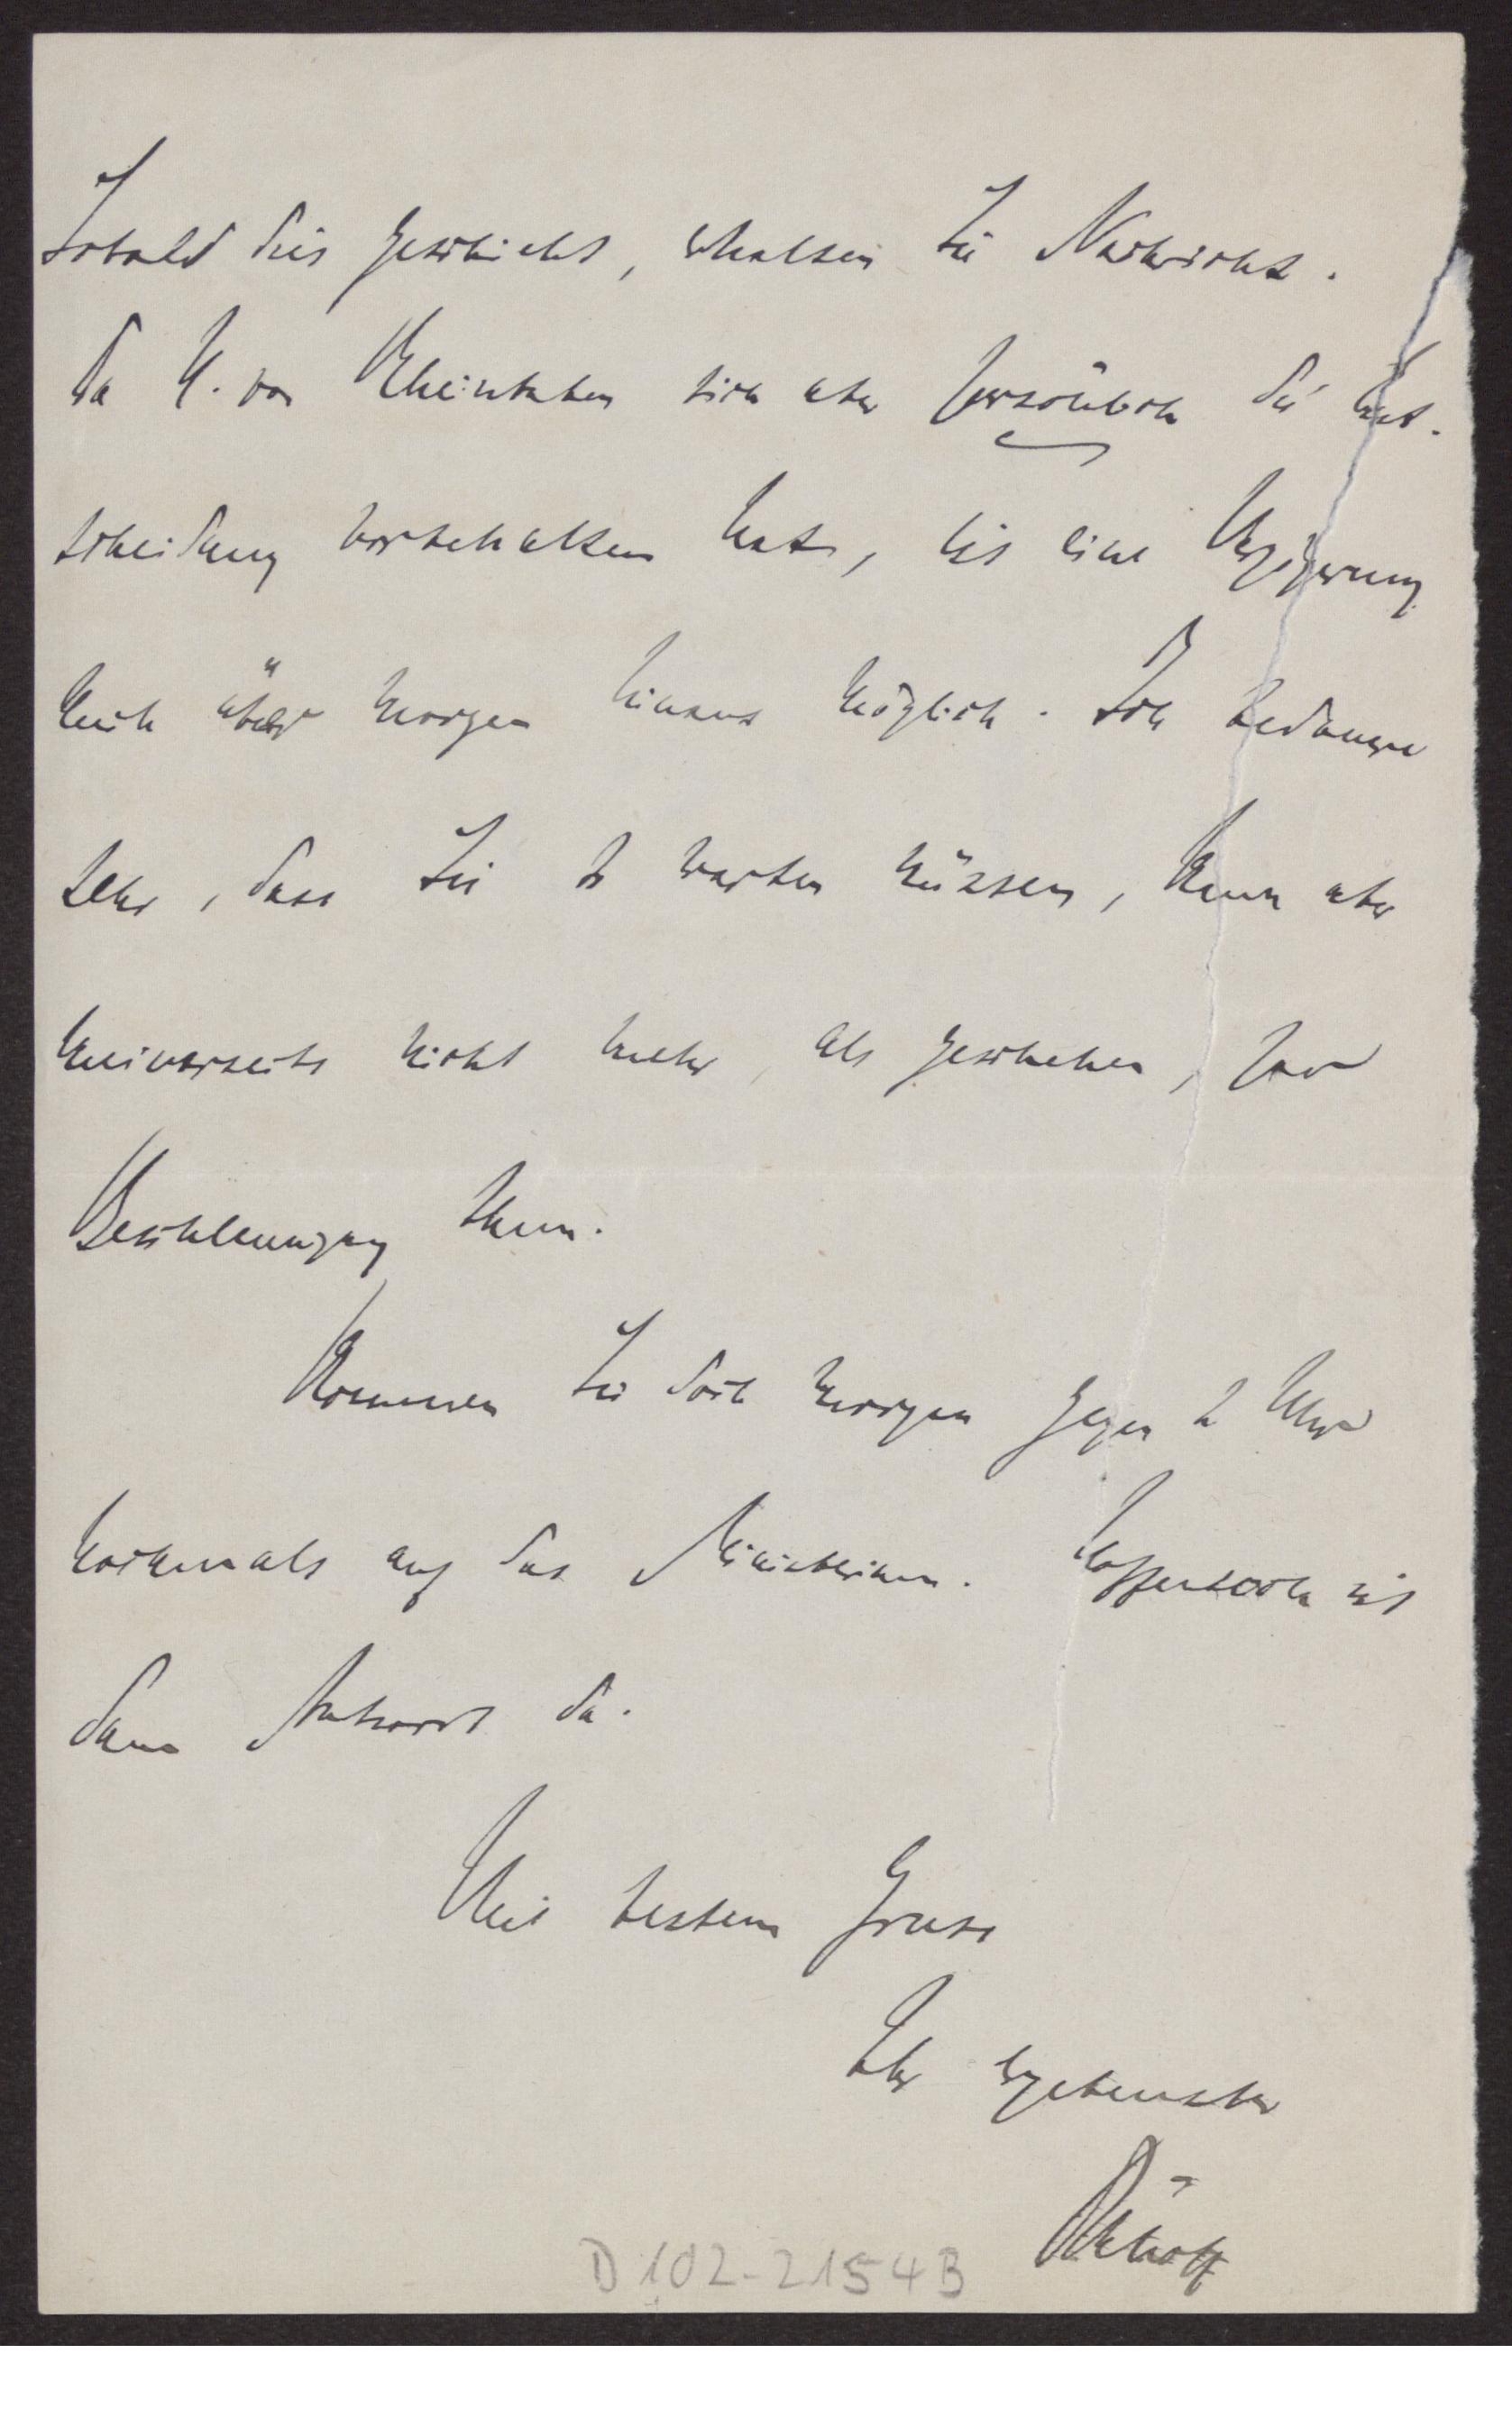 Sobald dies geschieht, erhalten Sie Nachricht.
Da H. von Rheinbaben sich aber persönlich die Ent-
scheidung vorbehalten hat, ist eine Verzögerung
auch über morgen hinaus möglich. Ich bedauere
sehr, dass Sie so warten müssen, kann aber
meinerseits nicht mehr, als geschehen, zur
Beschleunigung thun.
Kommen Sie doch morgen gegen 2 Uhr
nochmals auf das Ministerium. Hoffentlich ist
dann Antwort da.
Mit bestem Gruss
Ihr ergebenster
Althoff
D 102-2154B